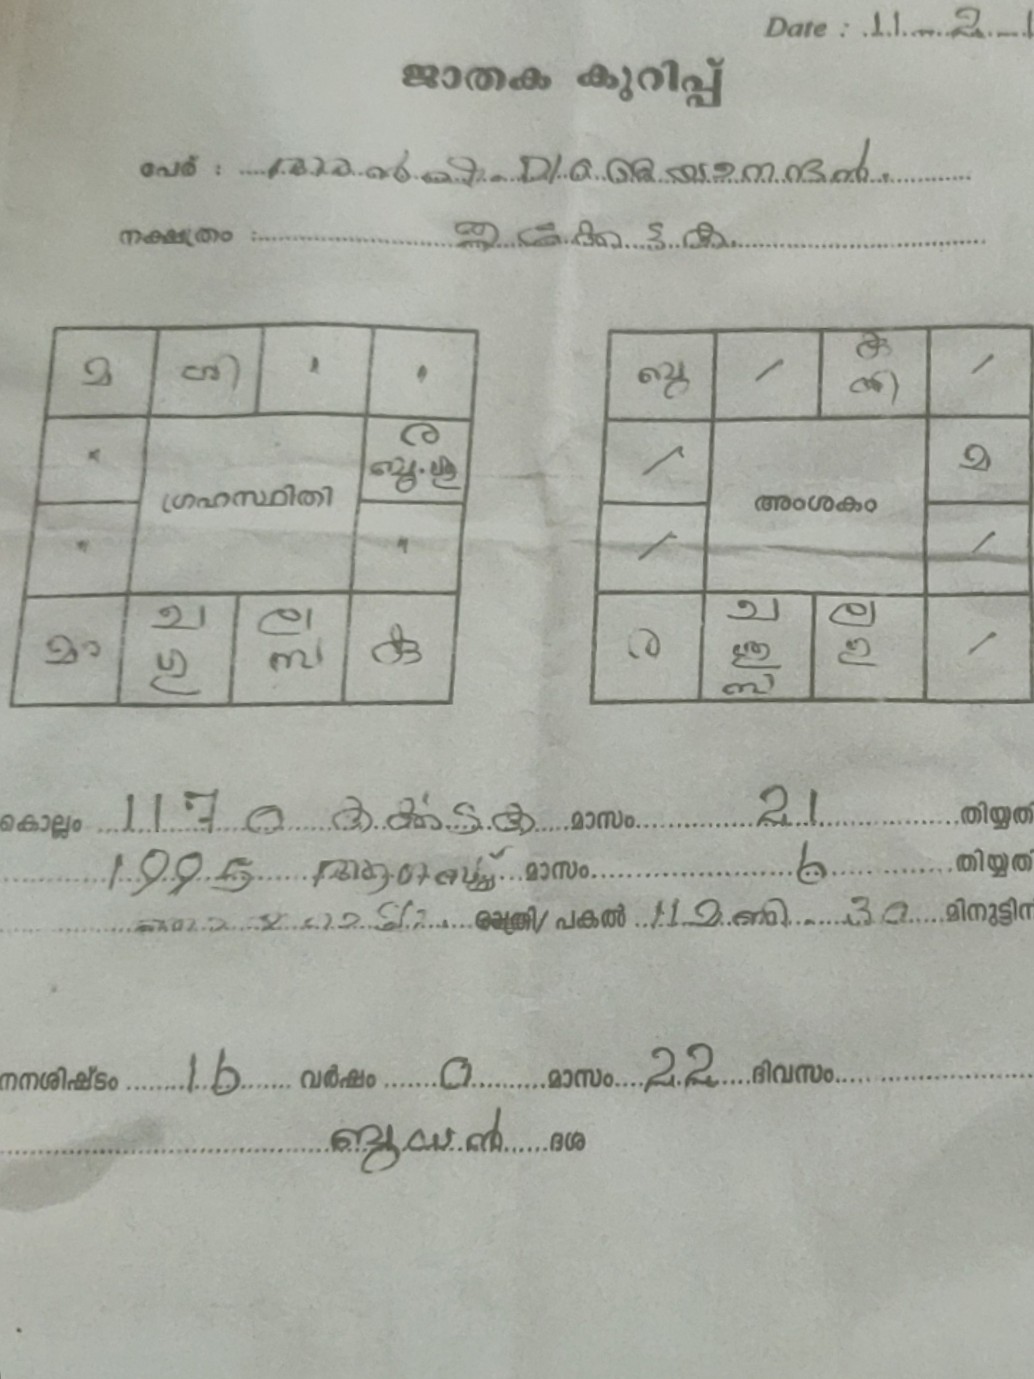 Date : 11 - 2 - 1
ജാതക കുറിപ്പ്
പേര് :
നക്ഷത്രം : തൃക്കേട്ട
മ ശി
ര
ബു.ശു
ഗ്രഹസ്ഥിതി
മാ ച ല കു
ഗു സ
ബു കു
ശി
മ
അംശകം
ര ച ല
സ ഗു
കൊല്ലം 1170 കർക്കടക മാസം 21 തിയ്യതി
1995 ആഗസ്റ്റ് മാസം 6 തിയ്യതി
രാത്രി/ പകൽ 11 മണി 30 മിനുട്ടിന്
നനശിഷ്ടം 16 വർഷം 0 മാസം 22 ദിവസം
ബുധൻ ദശ